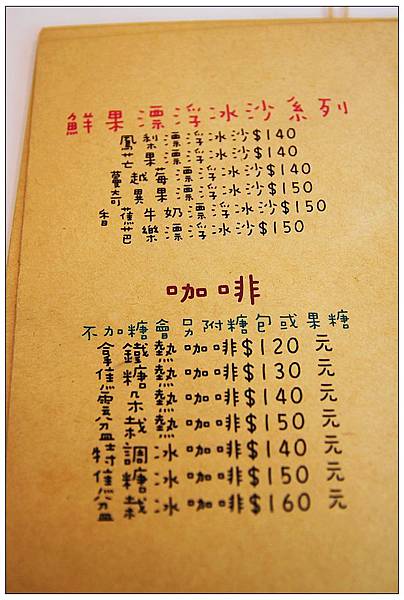 鮮果漂浮冰沙系列
鳳梨漂浮冰沙$140
芒果漂浮冰沙$140
蔓越莓漂浮冰沙$140
奇異果漂浮冰沙$150
香蕉牛奶漂浮冰沙$150
芭樂漂浮冰沙$150
咖啡
不加糖會另附糖包或果糖
拿鐵熱咖啡$120元
焦糖熱咖啡$130元
雲朵熱咖啡$140元
盆栽熱咖啡$150元
特調冰咖啡$140元
焦糖冰咖啡$150元
盆栽冰咖啡$160元